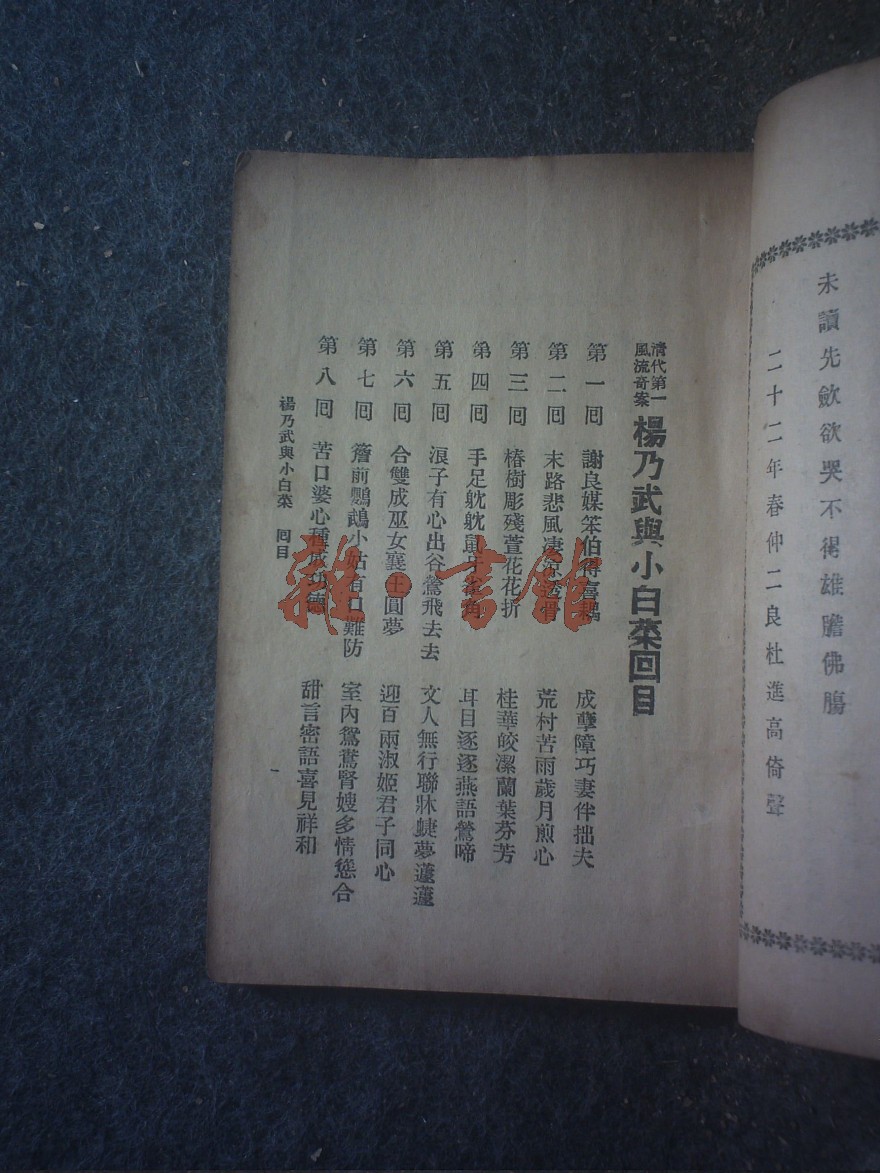 未讀先斂欲哭不得雄膽佛腸
二十二年春仲二良杜進高倚聲
清代第一
風流奇案
楊乃武與小白菜回目
第一回 謝良媒笨伯得喜耦 成孽障巧妻伴拙夫
第二回 末路悲風凄涼透骨 荒村苦雨歲月煎心
第三回 椿樹彫殘萱花花折 桂華皎潔蘭葉芬芳
第四回 手足躭躭鼠牙雀角 耳目逐逐燕語鶯啼
第五回 浪子有心出谷鶯飛去去 文人無行聯牀蜨夢蘧蘧
第六回 合雙成巫女襄王圓夢 迎百兩淑姬君子同心
第七回 簷前鸚鵡小姑有口難防 室內鴛鴦腎嫂多情慫合
第八回 苦口婆心種成功德 甜言密語喜見祥和
楊乃武與小白菜 回目
一
雜·書館